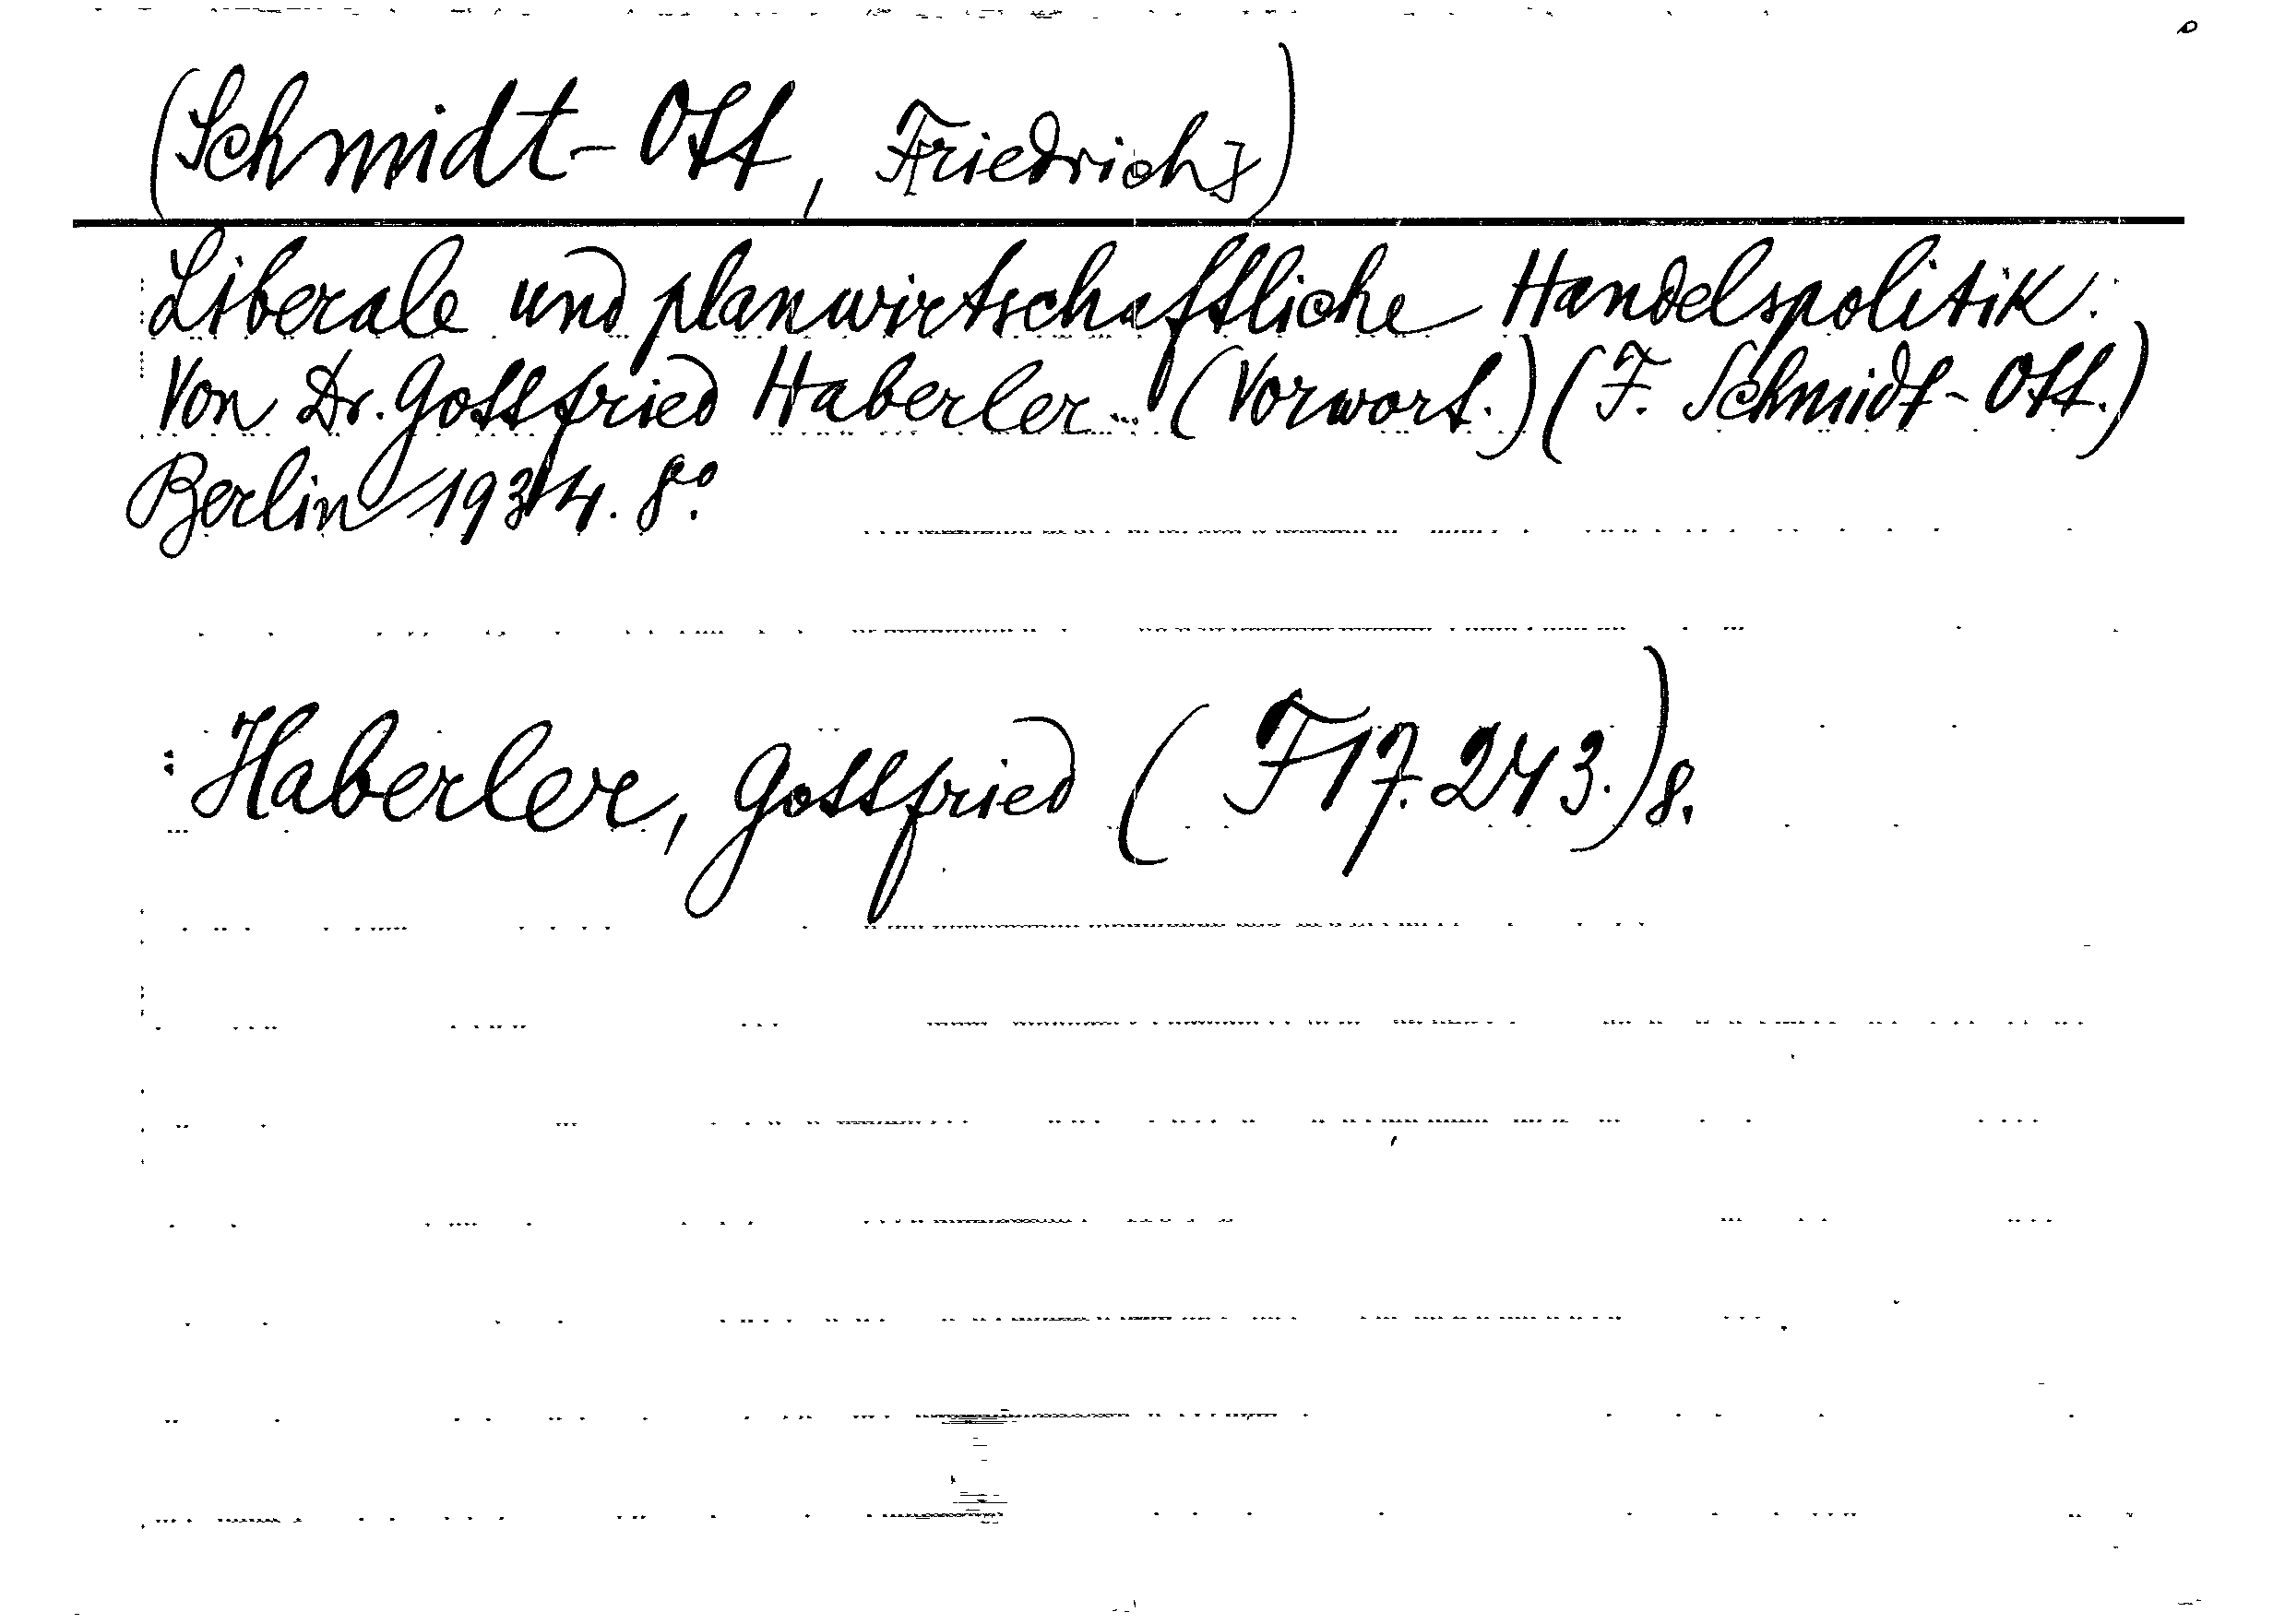 (Schmidt-Ott, Friedrich)
Liberale und planwirtschaftliche Handelspolitik.
Von Dr. Gottfried Haberler... (Vorwort.) (F. Schmidt-Ott.)
Berlin 1934. 8°.
: Haberler, Gottfried (F17.243.) 8.